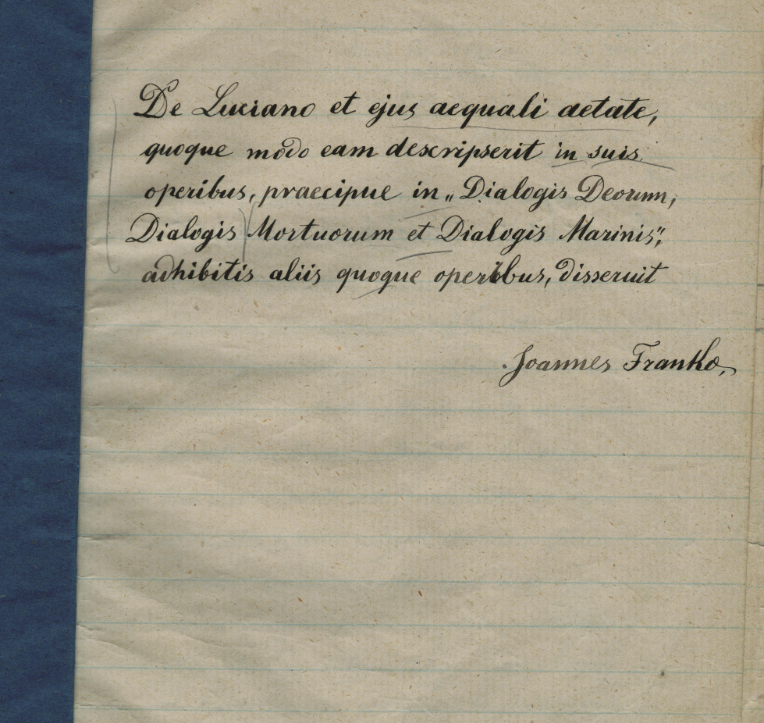 De Luciano et ejus aequali aetate,
quoque modo eam descripserit in suis
operibus, praecipue in „Dialogis Deorum,
Dialogis Mortuorum et Dialogis Marinis",
adhibitis aliis quoque operibus, disseruit
Joannes Franko.